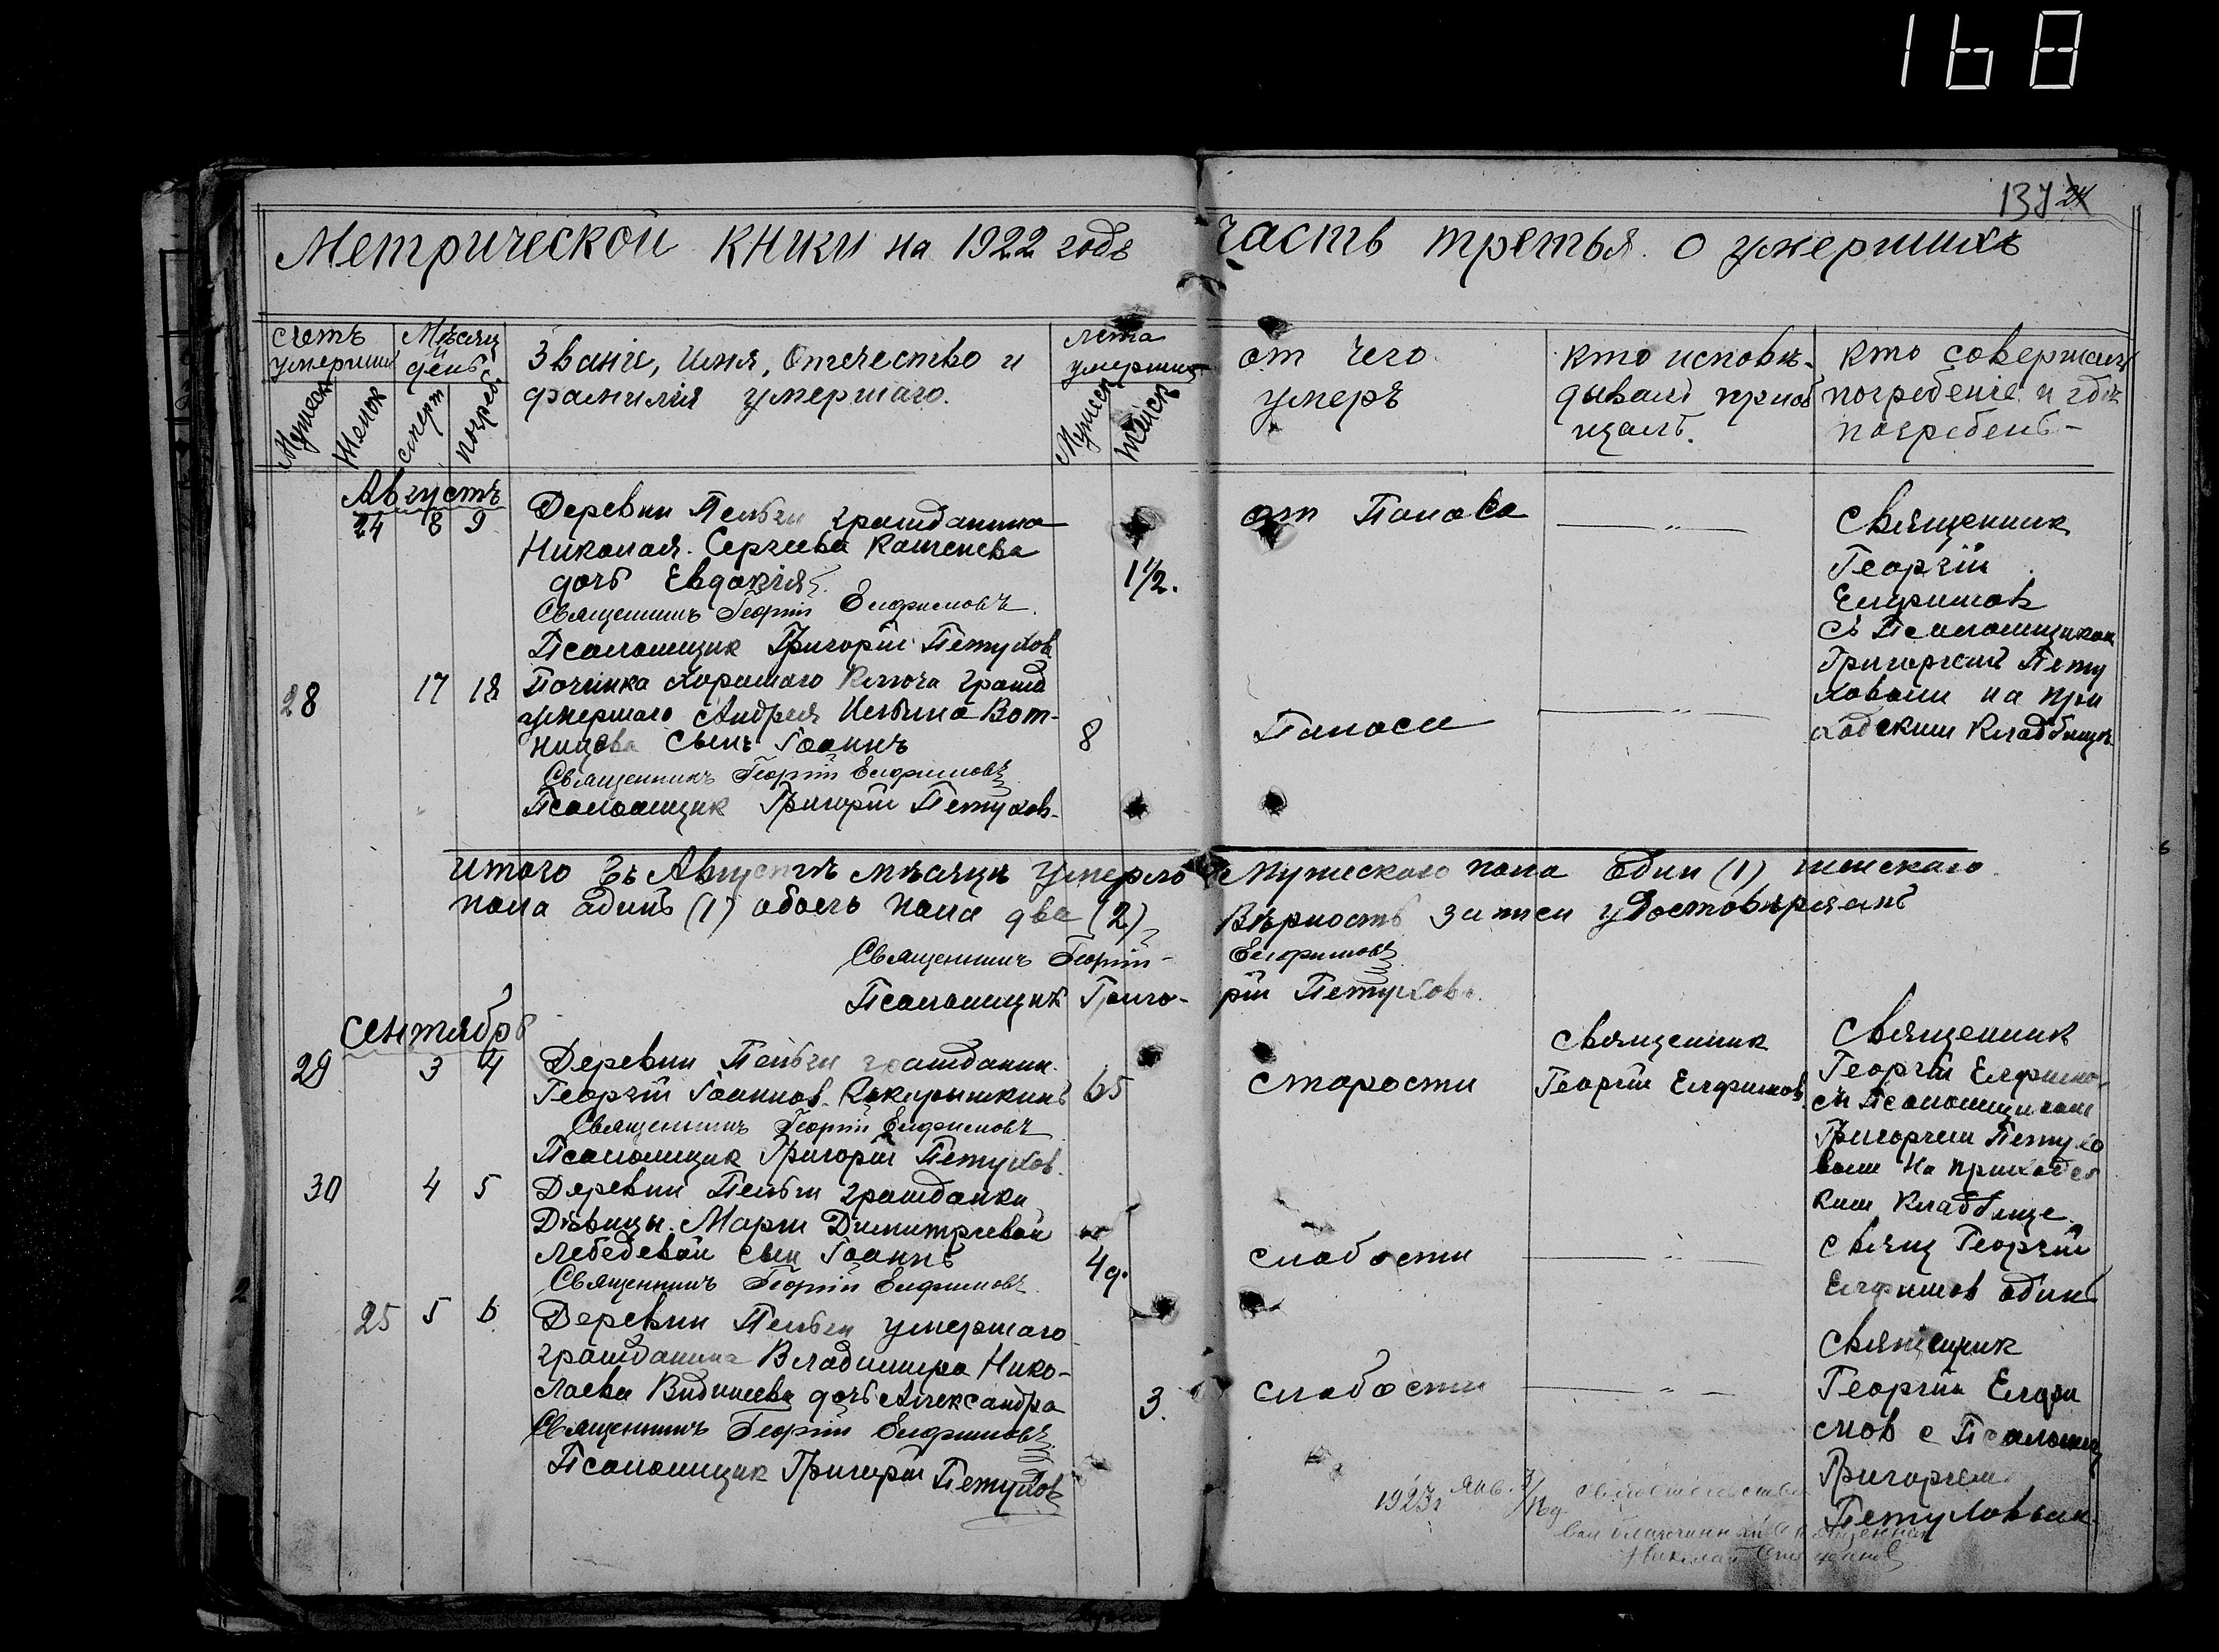 168
137 24
Метрической книги на 1922 годъ часть третья о умершихъ
счетъ умерших
Мужеск
Женск
Мѣсяц и день
смерт
погреб
Званіе, Имя, Отечество и
фамилія умершаго.
лета умерших
Мужеск
Женск
от чего
умеръ
кто исповѣ-
дывалъ приоб
щалъ.
кто совершалъ
погребеніе и гдѣ
погребенъ-
Августъ
24 8 9
Деревни Пельги гражданина
Николая Сергеева
дочь Евдокія
Священникъ Георгій Елфимовъ
Псаломщик Григорій Петухов
1 1/2.
от Поноса
Священник
Георгій
Елфимов
съ Псаломщиком
Григорием Пету
ховым на при
ходским Кладбищѣ
28 17 18
Починка Хорошаго Ключа гражд
умершаго Андрея Ильина Вот-
сынъ Іоаннъ
Священникъ Георгій Елфимовъ
Псаломщик Григорій Петухов-
8
Поноса
итого въ Августѣ мѣсяцѣ умерло мужескаго пола один (1) женскаго
пола одинъ (1) обоего пола два (2) Вѣрность записи удостовѣряемъ
Священникъ Георгій Елфимовъ
Псаломщикъ Григо- рій Петухов
Сентябрь
29 3 4
Деревни Пельги гражданин
Георгій Іоаннов
Священникъ Георгій Елфимовъ
Псаломщик Григорій Петухов.
65
старости
Священник
Георгій Елфимов
Священник
Георгій Елфимо
съ Псаломщиком
Григорием Петухо
вым на приходс
ким Кладбище
30 4 5
Деревни Пельги гражданки
Дѣвицы Маріи Димитриевой
Лебедевой сын Іоаннъ
Священникъ Георгій Елфимовъ
4 д.
слабости
Свящ Георгій
Елфимов одинъ
25 5 6
Деревни Пельги умершаго
гражданина Владимира Нико-
лаева дочь Александра
Священникъ Георгій Елфимовъ
Псаломщик Григорій Петухов
3.
слабости
Священник
Георгій Елфи
мов с Псаломщ
Григорием
Петуховым.
1923 г. Янв.